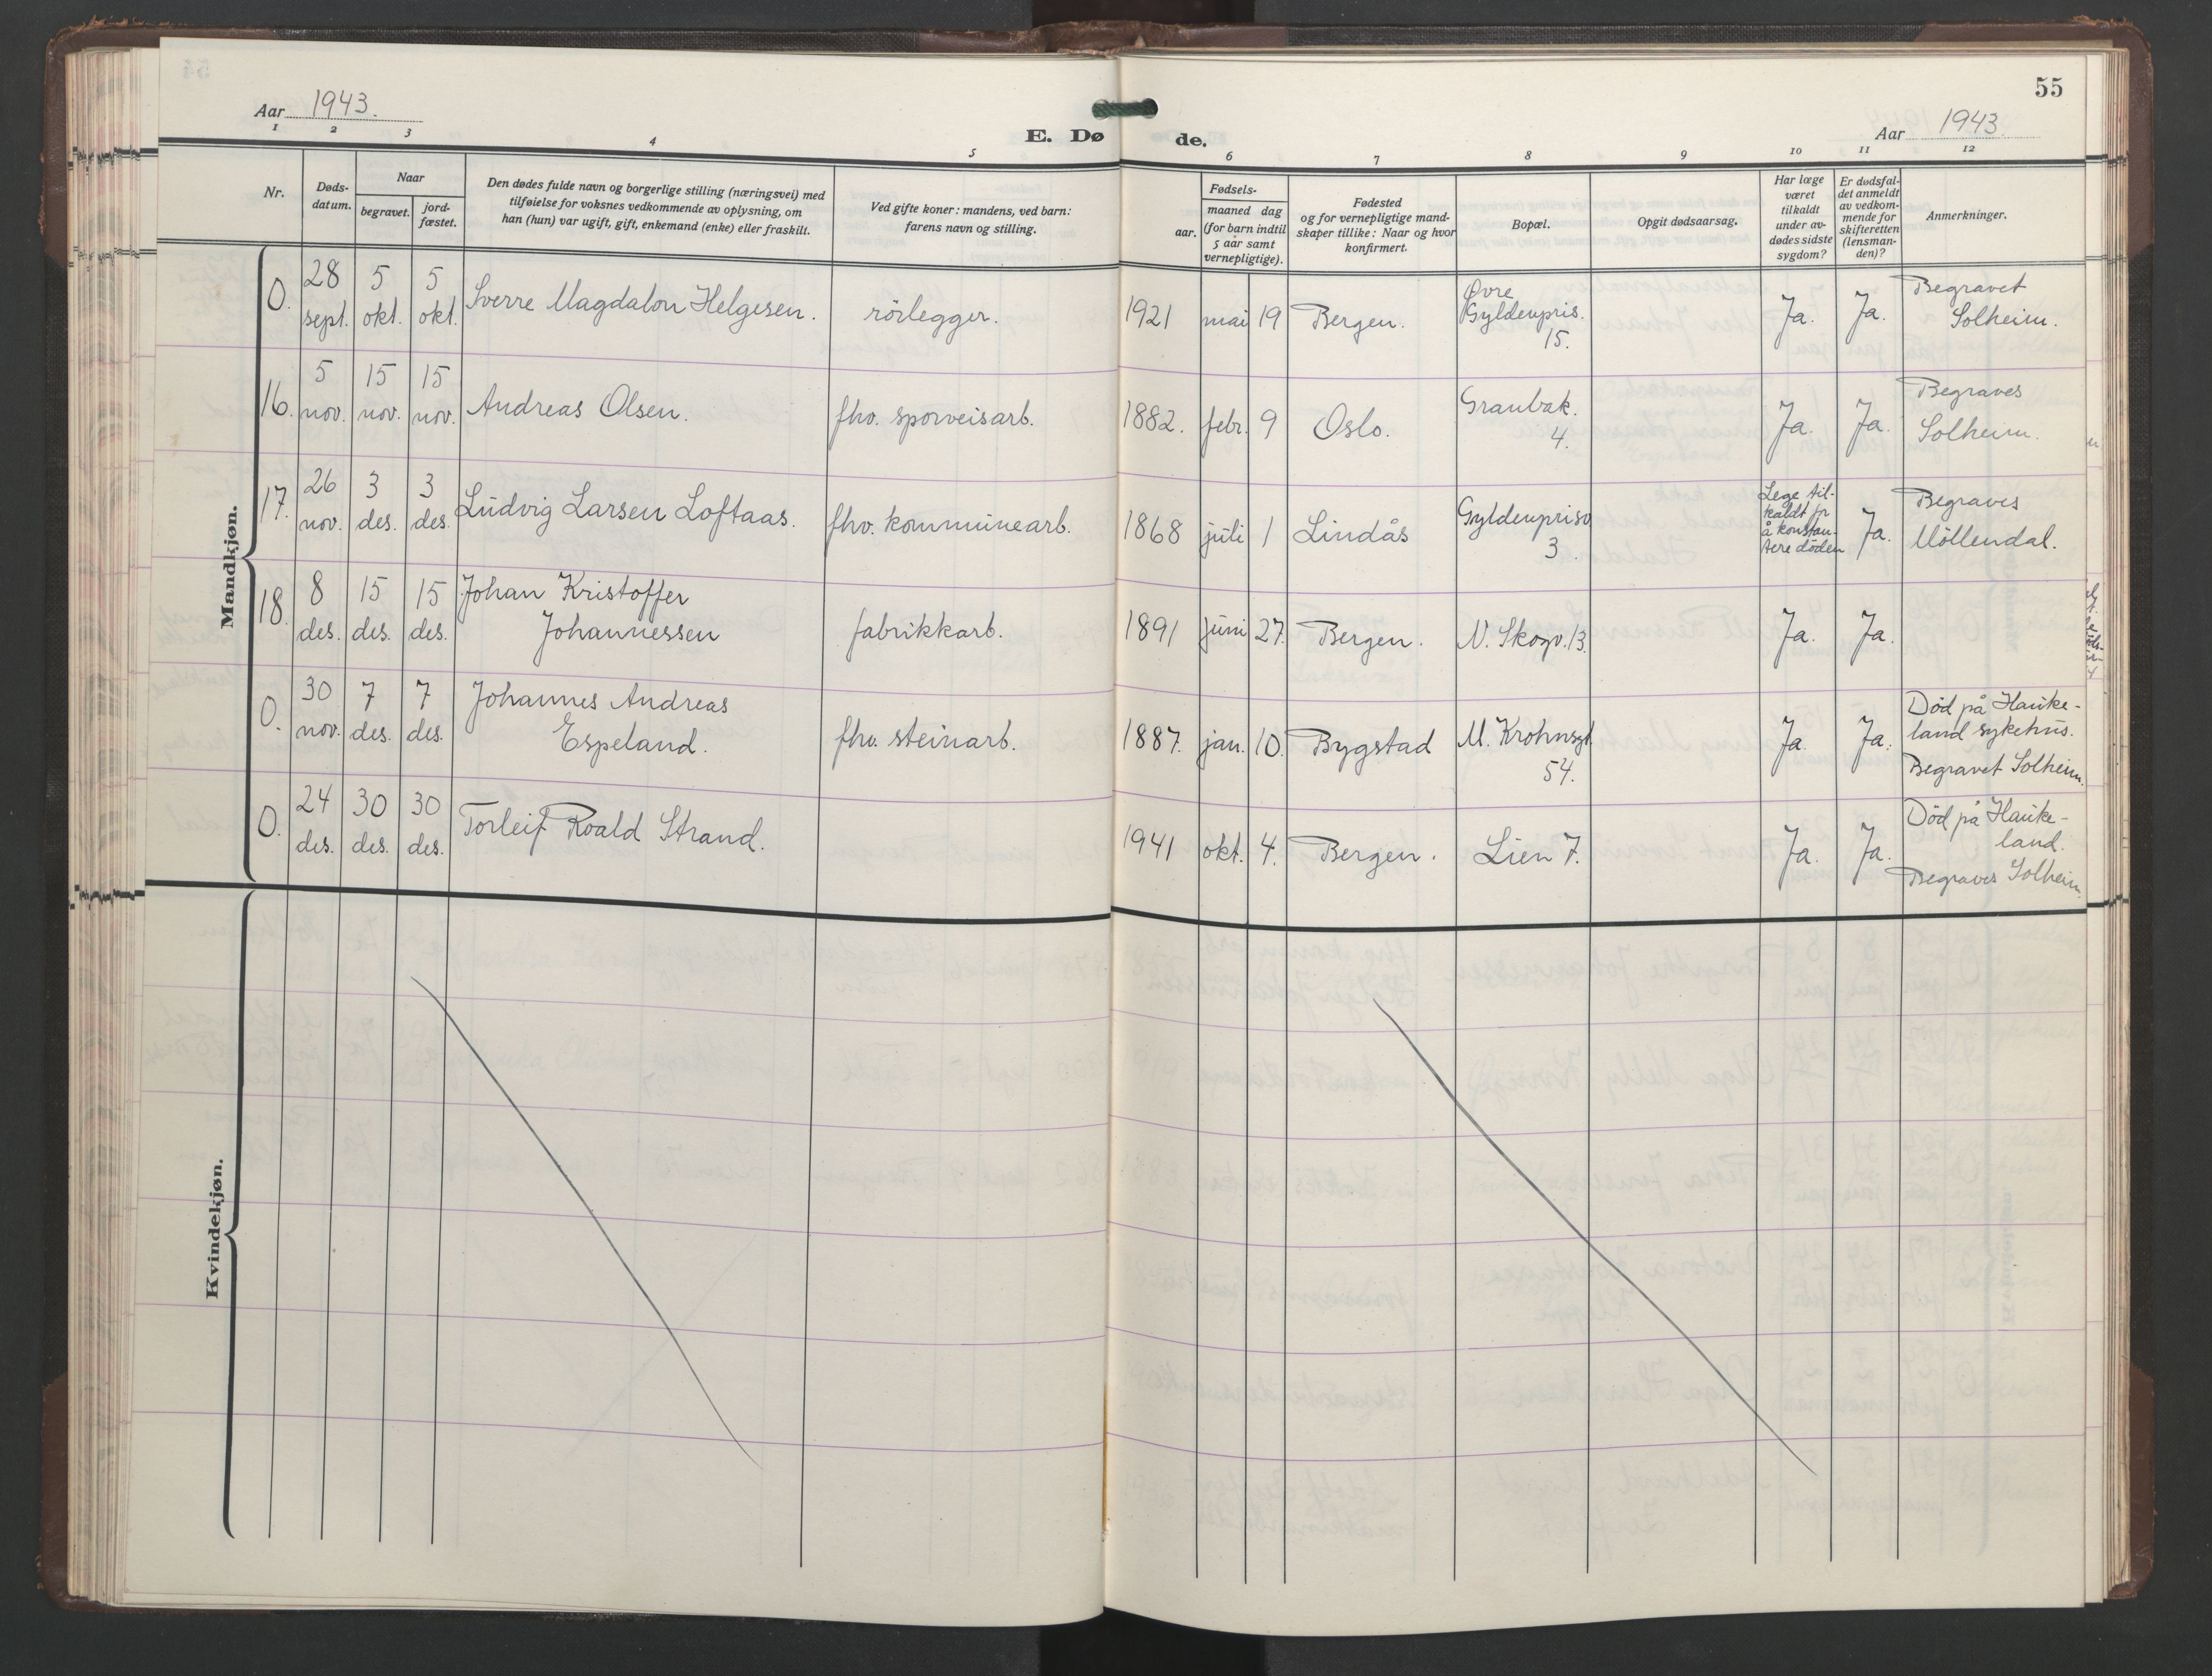 55
Aar 1943.
Aar 1943.
E. Dø de.
1 2 3 4 5 6 7 8 9 10 11 12
Nr.
Døds-
datum.
Naar
begravet.
jord-
fæstet.
Den dødes fulde navn og borgerlige stilling (næringsvei) med
tilføielse for voksnes vedkommende av oplysning, om
han (hun) var ugift, gift, enkemand (enke) eller fraskilt.
Ved gifte koner: mandens, ved barn:
farens navn og stilling.
Fødsels-
aar.
maaned dag
(for barn indtil
5 aar samt
vernepligtige).
Fødested
og for vernepligtige mand-
skaper tillike: Naar og hvor
konfirmert.
Bopæl.
Opgit dødsaarsag.
Har læge
været
tilkaldt
under av-
dødes sidste
sygdom?
Er dødsfal-
det anmeldt
av vedkom-
mende for
skifteretten
(lensman-
den)?
Anmerkninger.
Mandkjøn.
0. 28 sept. 5 okt. 5 okt. Sverre Magdalon Helgesen. rörlegger. 1921 mai 19 Bergen. Øvre
Gyldenpris.
15. Ja. Ja. Begravet
Solheim.
16. 5 nov. 15 nov. 15 nov. Andreas Olsen. fhv. sporveisarb. 1882. febr. 9 Oslo. Granbak.
4. Ja. Ja. Begraves
Solheim.
17. 26 nov. 3 des. 3 des. Ludvig Larsen Loftaas. fhv. kommunearb. 1868 juli 1 Lindås Gyldenprisv
3. Lege til-
kaldt fr
å konstan-
tere döden Ja. Begraves
Möllendal.
18. 8 des. 15 des. 15 des. Johan Kristoffer
Johannessen fabrikkarb. 1891 juni 27. Bergen. N. Skogv. 13. Ja. Ja.
0. 30 nov. 7 des. 7 des. Johannes Andreas
Espeland. fhv. steinarb. 1887. jan. 10. Bygstad M. Krohnsgt
54. Ja. Ja. Död på Hauke-
land sykehus.
Begravet Solheim.
0. 24 des. 30 des. 30 des. Torleif Roald Strand. 1941 okt. 4. Bergen. Lien 7. Ja. Ja. Död på Hauke-
land.
Begraves Solheim.
Kvindekjøn.